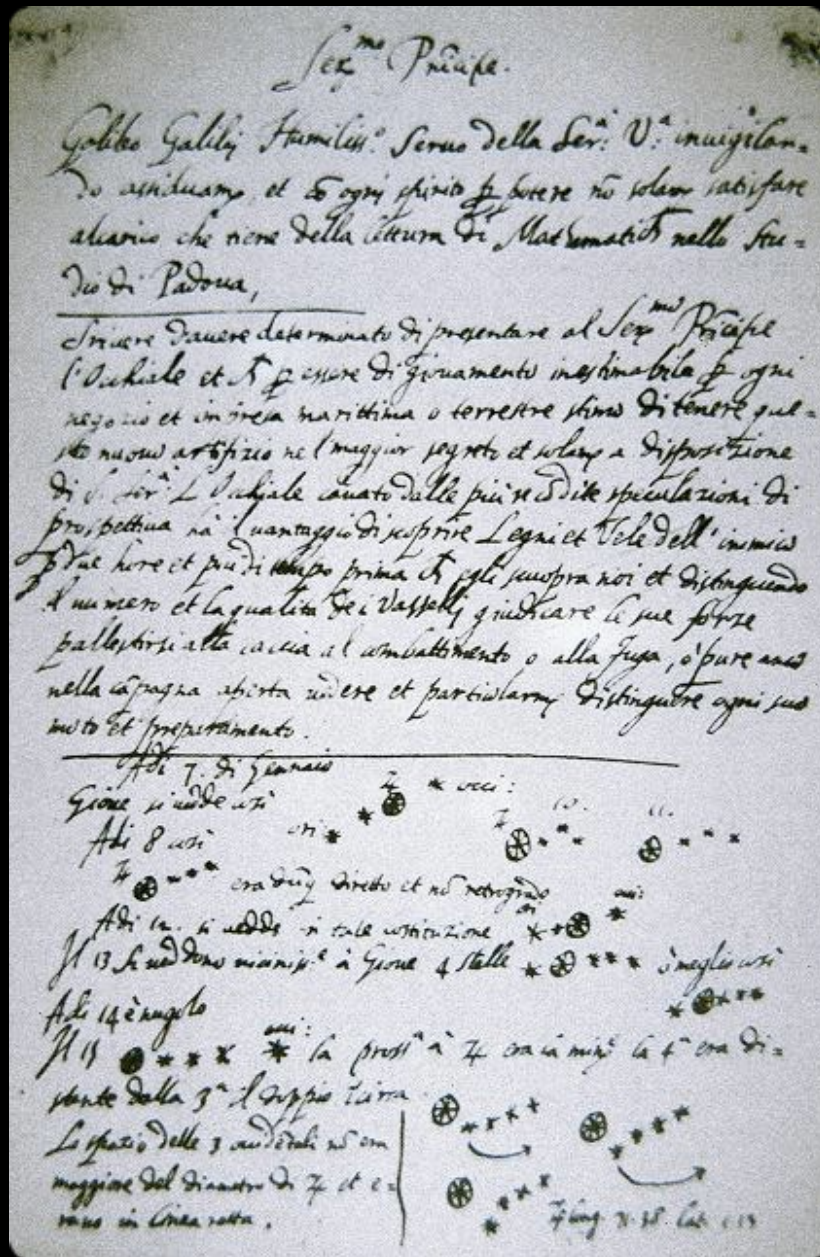 Ser.mo Principe.
Galileo Galilej Humiliss.o Seruo della Ser.a V.a inuigilan=
do assiduam.e et cõ ogni spirito p potere nõ solam.e satisfare
alcarico che tiene della lettura di Mathematich nello Stu=
dio di Padoua,
Scriuere dauere determinato di presentare al Ser.mo Principe
l'Occhiale et ch p essere di giouamento inestimabile p ogni
negozio et impresa marittima o terrestre stimo di tenere que=
sto nuouo artifizio nel maggior segreto et solam.e a disposizione
di S. Ser.a L'Occhiale cauato dalle più recõdite speculazioni di
prospettiua hà il uantaggio di scoprire Legni et Vele dell'inimico
p due hore et più di tempo prima ch egli scuopra noi et distinguendo
il numero et la qualità de i Vasselli giudicare le sue forze
pallestirsi alla caccia al combattimento o alla fuga, ò pure anco
nella cãpagna aperta uedere et particularm.e distinguere ogni suo
moto et preparamento.
Adi 7. di Gennaio
Gioue si uede così ♃ occi:
Adi 8 così ori ♃ 10. 11.
♃ era dũq diretto et nõ retrogrado
Adi 12. si uedde in tale costituzione ori occi:
Il 13 si ueddono uiciniss.e à Gioue 4 stelle ò meglio così
Adi 14 è nugolo
Il 15 occi: la pross.a à ♃ era la min.e la 4.a era di=
stante dalla 3.a il doppio
Lo spazio delle 3 occidẽtali nõ era
maggiore del diametro di ♃ et e=
rano in linea retta.
♃ long. 71.38 Lat. 1.13